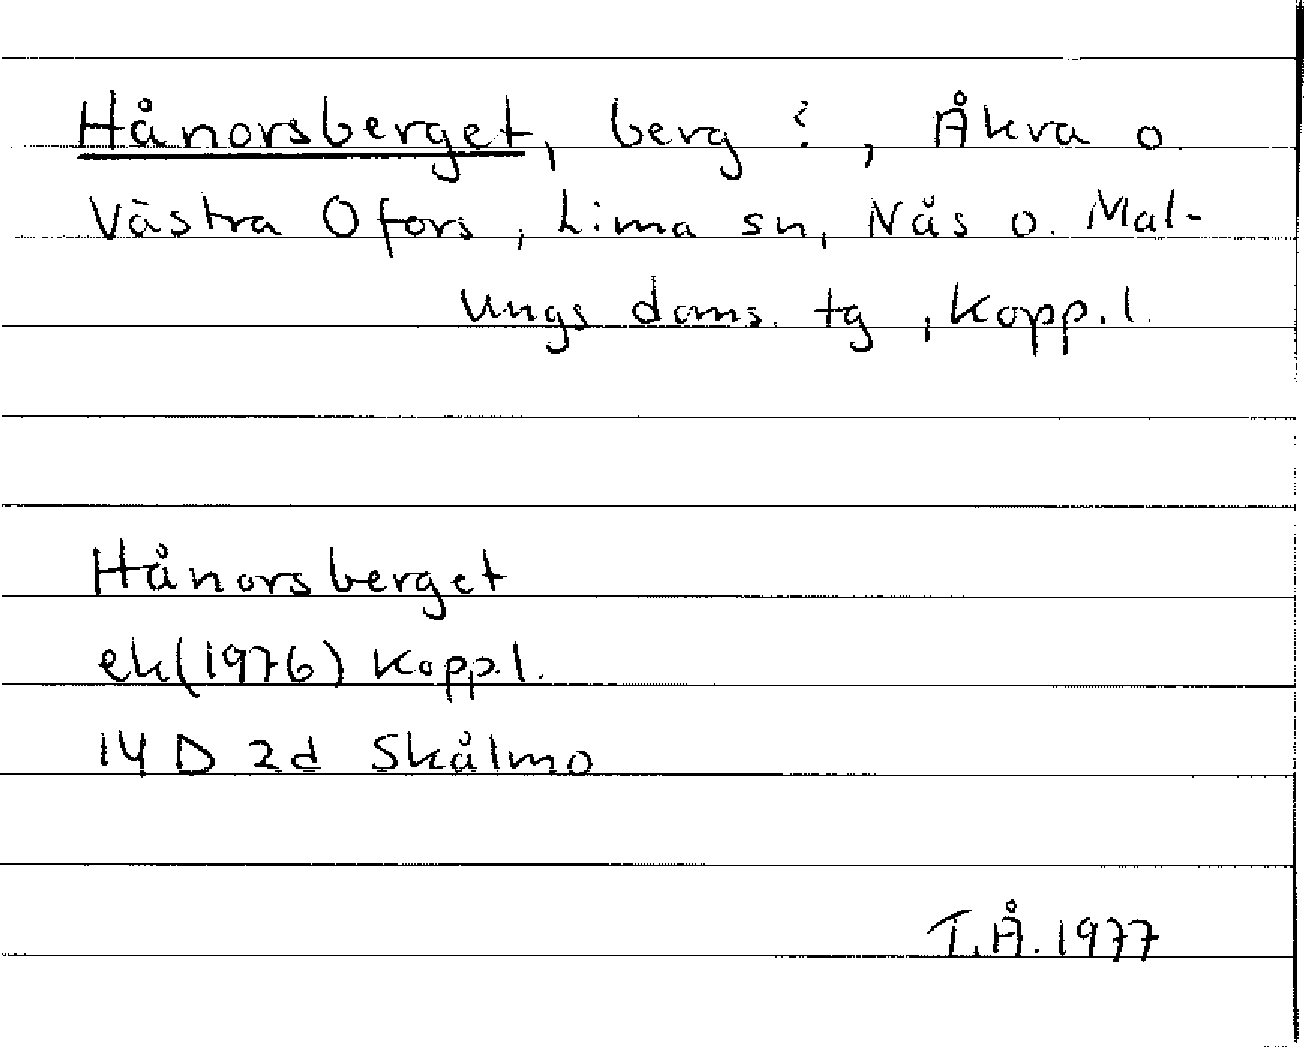 Hånorsberget, berg ?, Åkra o.
Västra Ofors, Lima sn, Nås o. Mal-
ungs doms. tg, Kopp. l.
Hånorsberget
ek(1976) Kopp.l.
14 D 2d Skålmo
T.Å. 1977